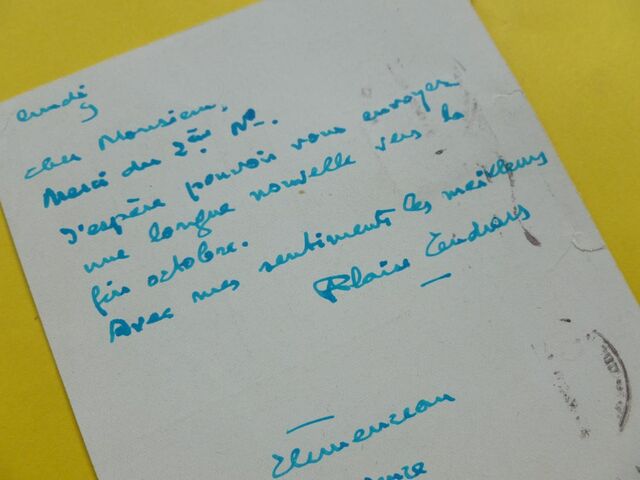 lundi
cher Monsieur,
Merci du 2ème No.
J'espère pouvoir vous envoyer
une longue nouvelle vers la
fin octobre.
Avec mes sentiments les meilleurs
Blaise Cendrars
Clemenceau